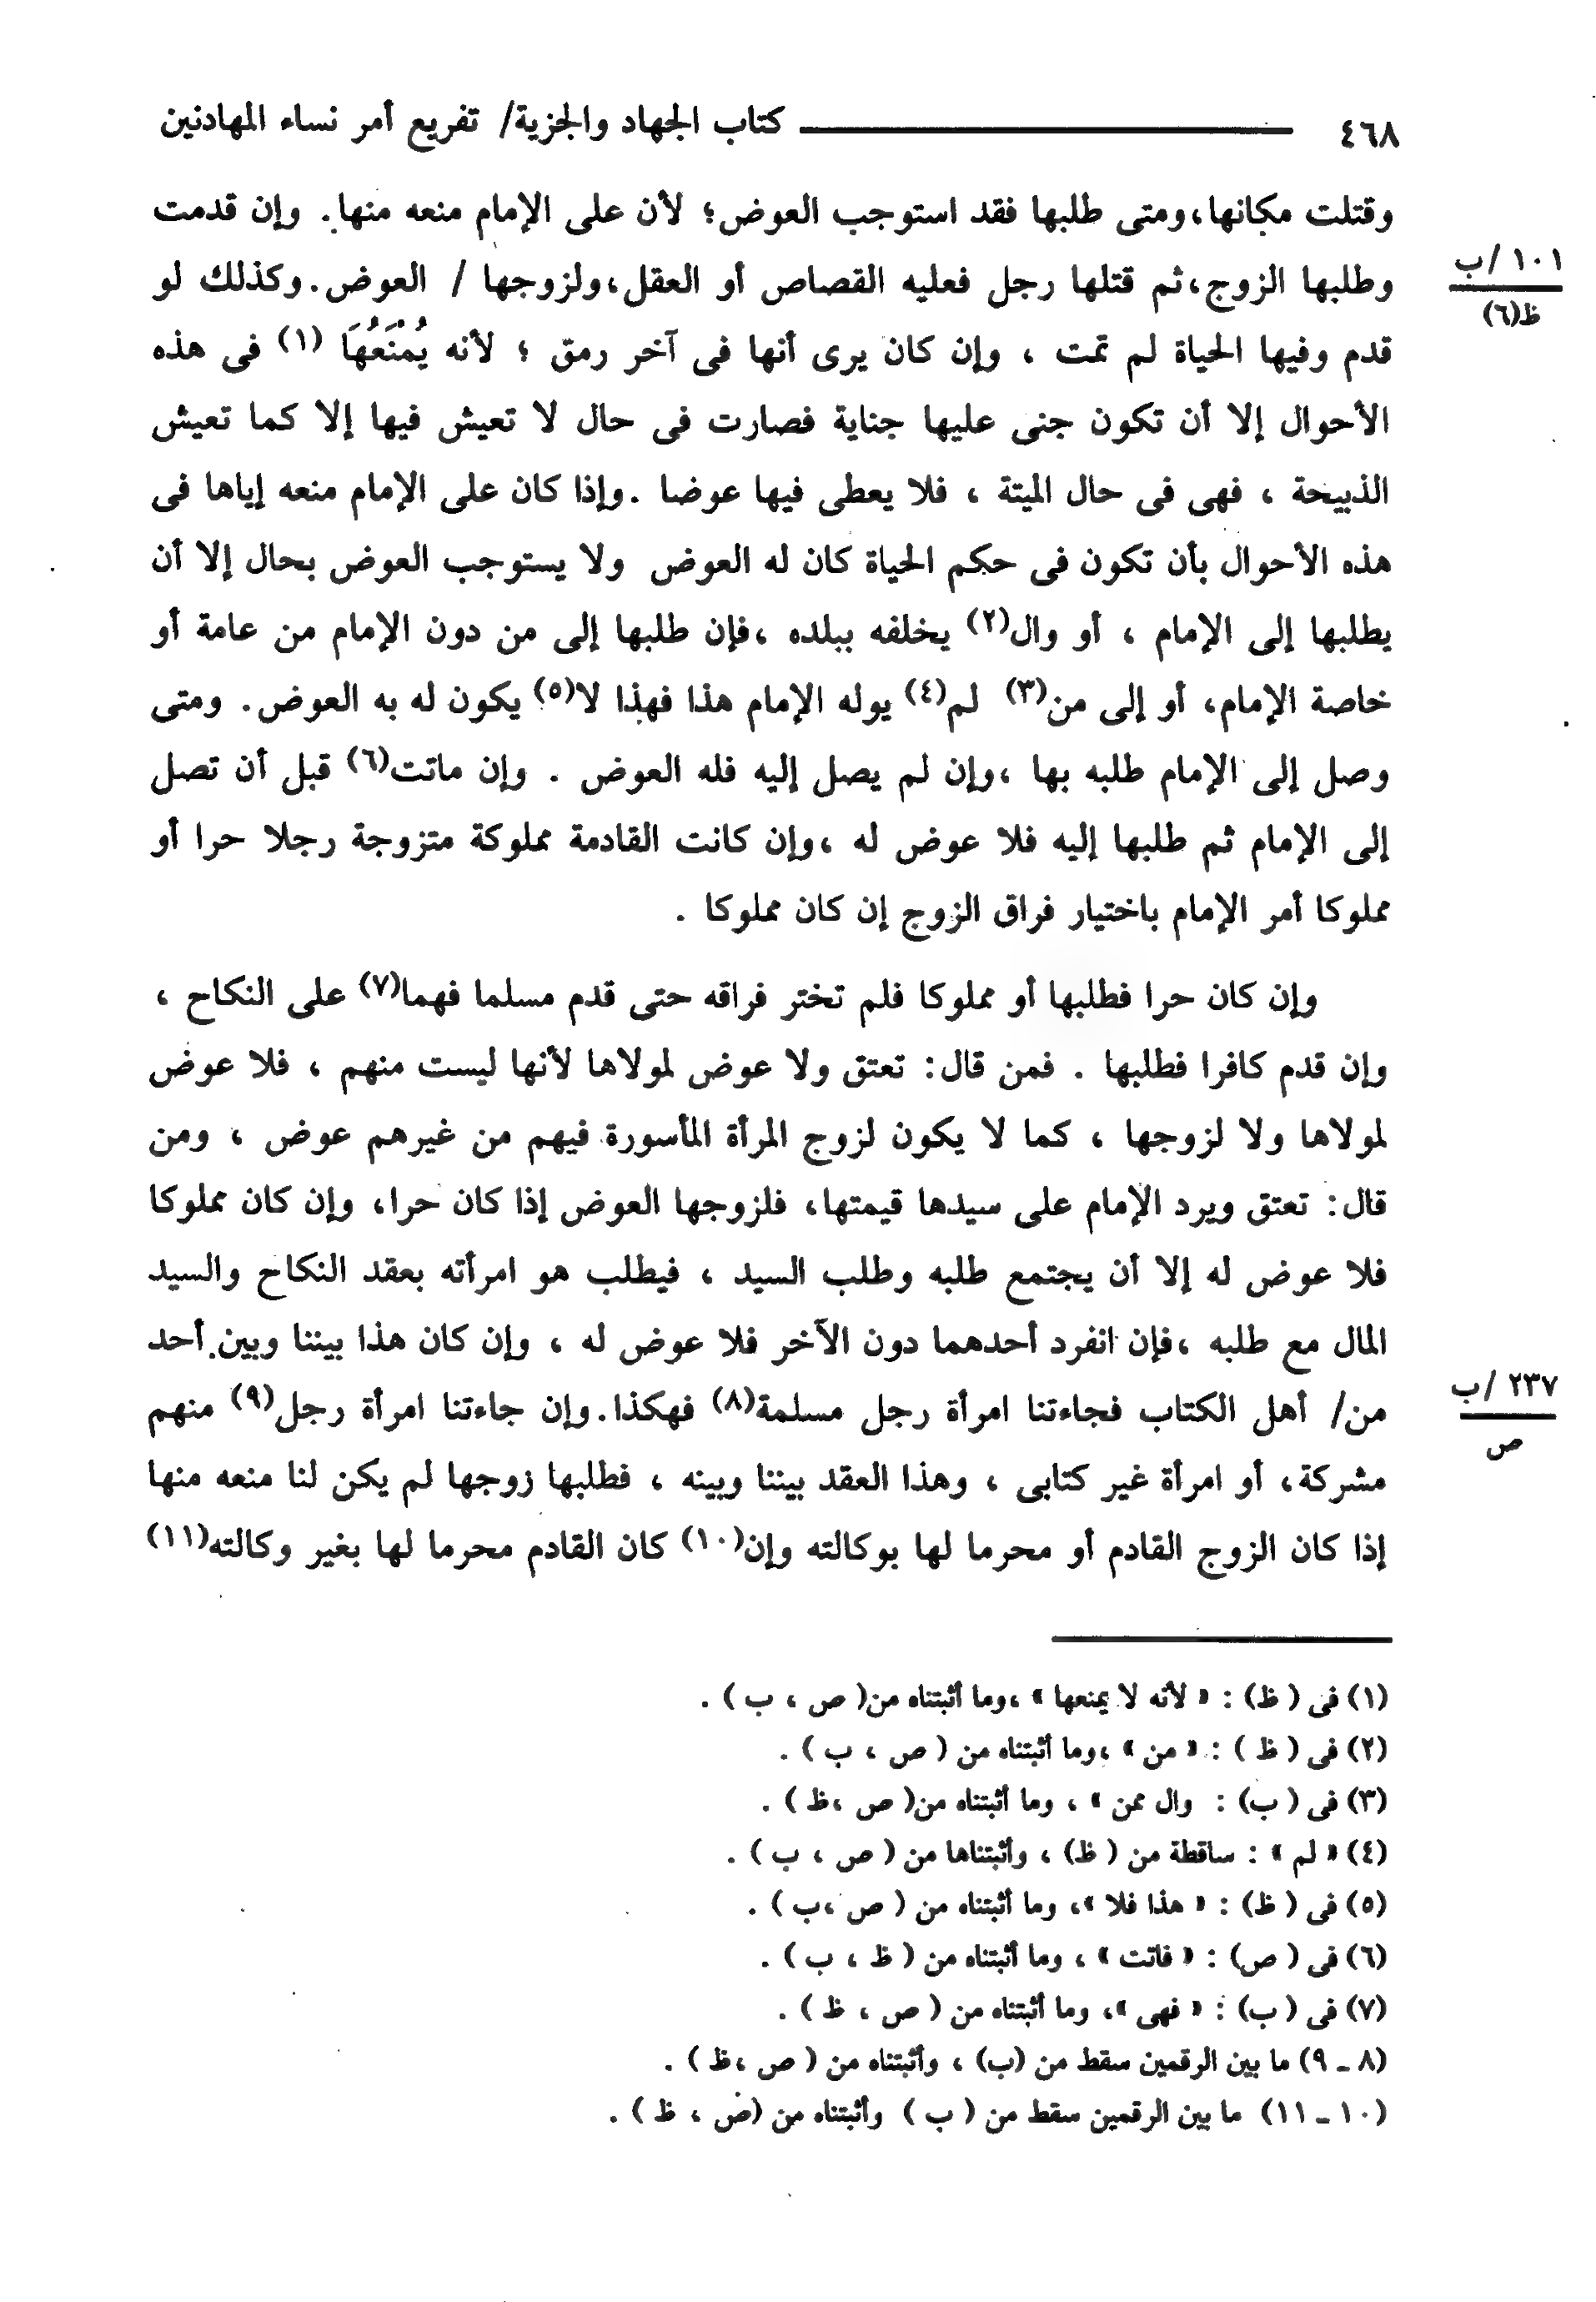 ٤٦٨ كتاب الجهاد والجزية/ تفريع أمر نساء المهادنين
وقتلت مكانها،ومتى طلبها فقد استوجب العوض؛ لأن على الإمام منعه منها. وإن قدمت
وطلبها الزوج،ثم قتلها رجل فعليه القصاص أو العقل،ولزوجها / العوض.وكذلك لو
١٠١ /ب
ظ(٦)
قدم وفيها الحياة لم تمت ، وإن كان يرى أنها فى آخر رمق ؛ لأنه يُمْنَعُهَا (١) فى هذه
الأحوال إلا أن تكون جنى عليها جناية فصارت فى حال لا تعيش فيها إلا كما تعيش
الذبيحة ، فهى فى حال الميتة ، فلا يعطى فيها عوضا .وإذا كان على الإمام منعه إياها فى
هذه الأحوال بأن تكون فى حكم الحياة كان له العوض ولا يستوجب العوض بحال إلا أن
يطلبها إلى الإمام ، أو وال(٢) يخلفه ببلده ،فإن طلبها إلى من دون الإمام من عامة أو
خاصة الإمام، أو إلى من(٣) لم(٤) يوله الإمام هذا فهذا لا(٥) يكون له به العوض. ومتى
وصل إلى الإمام طلبه بها ،وإن لم يصل إليه فله العوض . وإن ماتت(٦) قبل أن تصل
إلى الإمام ثم طلبها إليه فلا عوض له ،وإن كانت القادمة مملوكة متزوجة رجلا حرا أو
مملوكا أمر الإمام باختيار فراق الزوج إن كان مملوكا .
وإن كان حرا فطلبها أو مملوكا فلم تختر فراقه حتى قدم مسلما فهما(٧) على النكاح ،
وإن قدم كافرا فطلبها . فمن قال: تعتق ولا عوض لمولاها لأنها ليست منهم ، فلا عوض
لمولاها ولا لزوجها ، كما لا يكون لزوج المرأة المأسورة فيهم من غيرهم عوض ، ومن
قال: تعتق ويرد الإمام على سيدها قيمتها، فلزوجها العوض إذا كان حرا، وإن كان مملوكا
فلا عوض له إلا أن يجتمع طلبه وطلب السيد ، فيطلب هو امرأته بعقد النكاح والسيد
المال مع طلبه ،فإن انفرد أحدهما دون الآخر فلا عوض له ، وإن كان هذا بيننا وبين أحد
من/ أهل الكتاب فجاءتنا امرأة رجل مسلمة(٨) فهكذا.وإن جاءتنا امرأة رجل(٩) منهم
٢٣٧ /ب
ص
مشركة، أو امرأة غير كتابى ، وهذا العقد بيننا وبينه ، فطلبها زوجها لم يكن لنا منعه منها
إذا كان الزوج القادم أو محرما لها بوكالته وإن(١٠) كان القادم محرما لها بغير وكالته(١١)
(١) فى ( ظ) : « لأنه لا يمنعها » ،وما أثبتناه من( ص ، ب ) .
(٢) فى ( ظ ) : « من » ،وما أثبتناه من ( ص ، ب ) .
(٣) فى ( ب) : وال ممن » ، وما أثبتناه من( ص ،ظ ) .
(٤) « لم » : ساقطة من ( ظ) ، وأثبتناها من ( ص ، ب ) .
(٥) فى ( ظ) : « هذا فلا »، وما أثبتناه من ( ص ،ب ) .
(٦) فى ( ص) : « فاتت » ، وما أثبتناه من ( ظ ، ب ) .
(٧) فى ( ب) : « فهى »، وما أثبتناه من ( ص ، ظ ) .
(٨ ـ ٩) ما بين الرقمين سقط من (ب) ، وأثبتناه من ( ص ،ظ ) .
(١٠ ـ ١١) ما بين الرقمين سقط من ( ب ) وأثبتناه من (ص ، ظ ) .